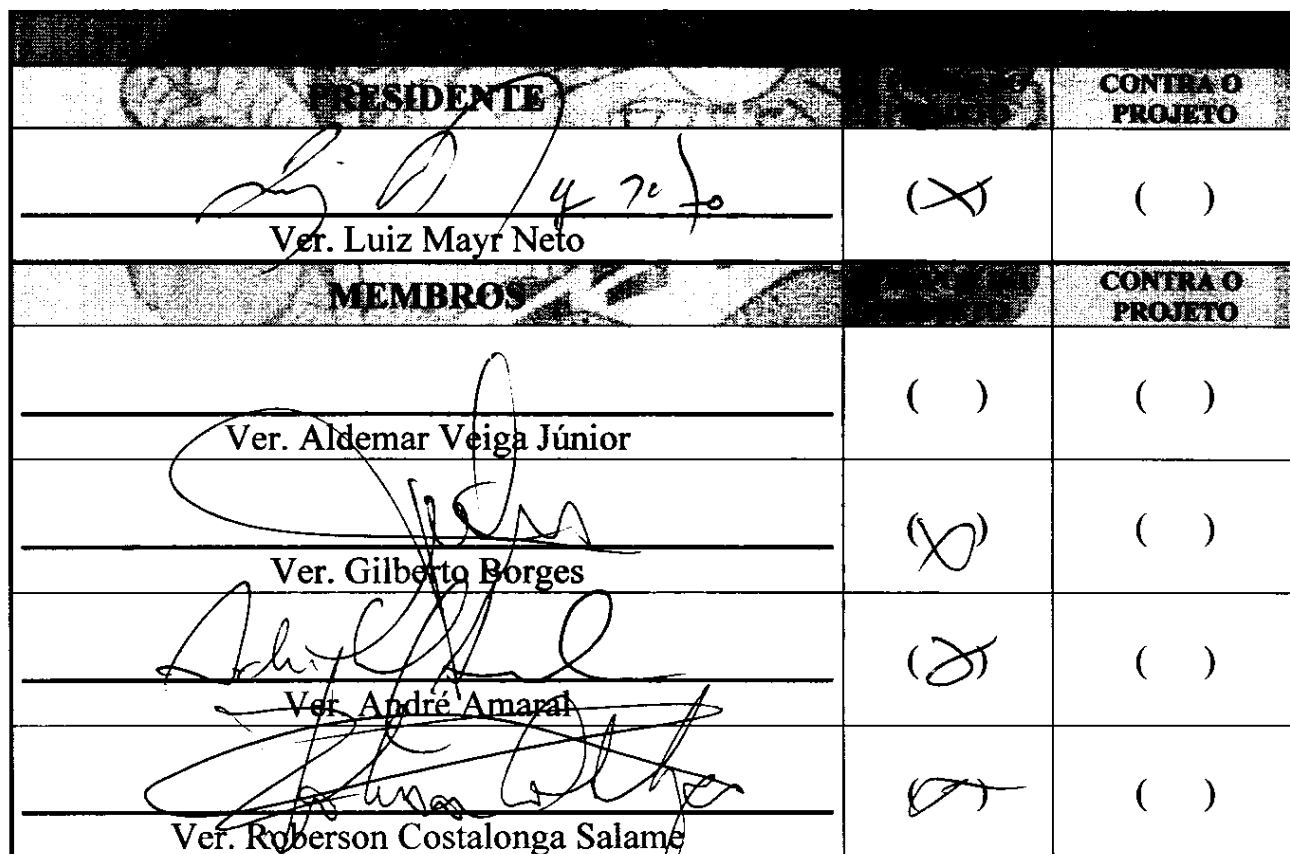 PRESIDENTE
CONTRA O
PROJETO
( X ) ( )
Ver. Luiz Mayr Neto
MEMBROS
CONTRA O
PROJETO
( ) ( )
Ver. Aldemar Veiga Júnior
( X ) ( )
Ver. Gilberto Borges
( ) ( )
Ver. André Amaral
( ) ( )
Ver. Roberson Costalonga Salame